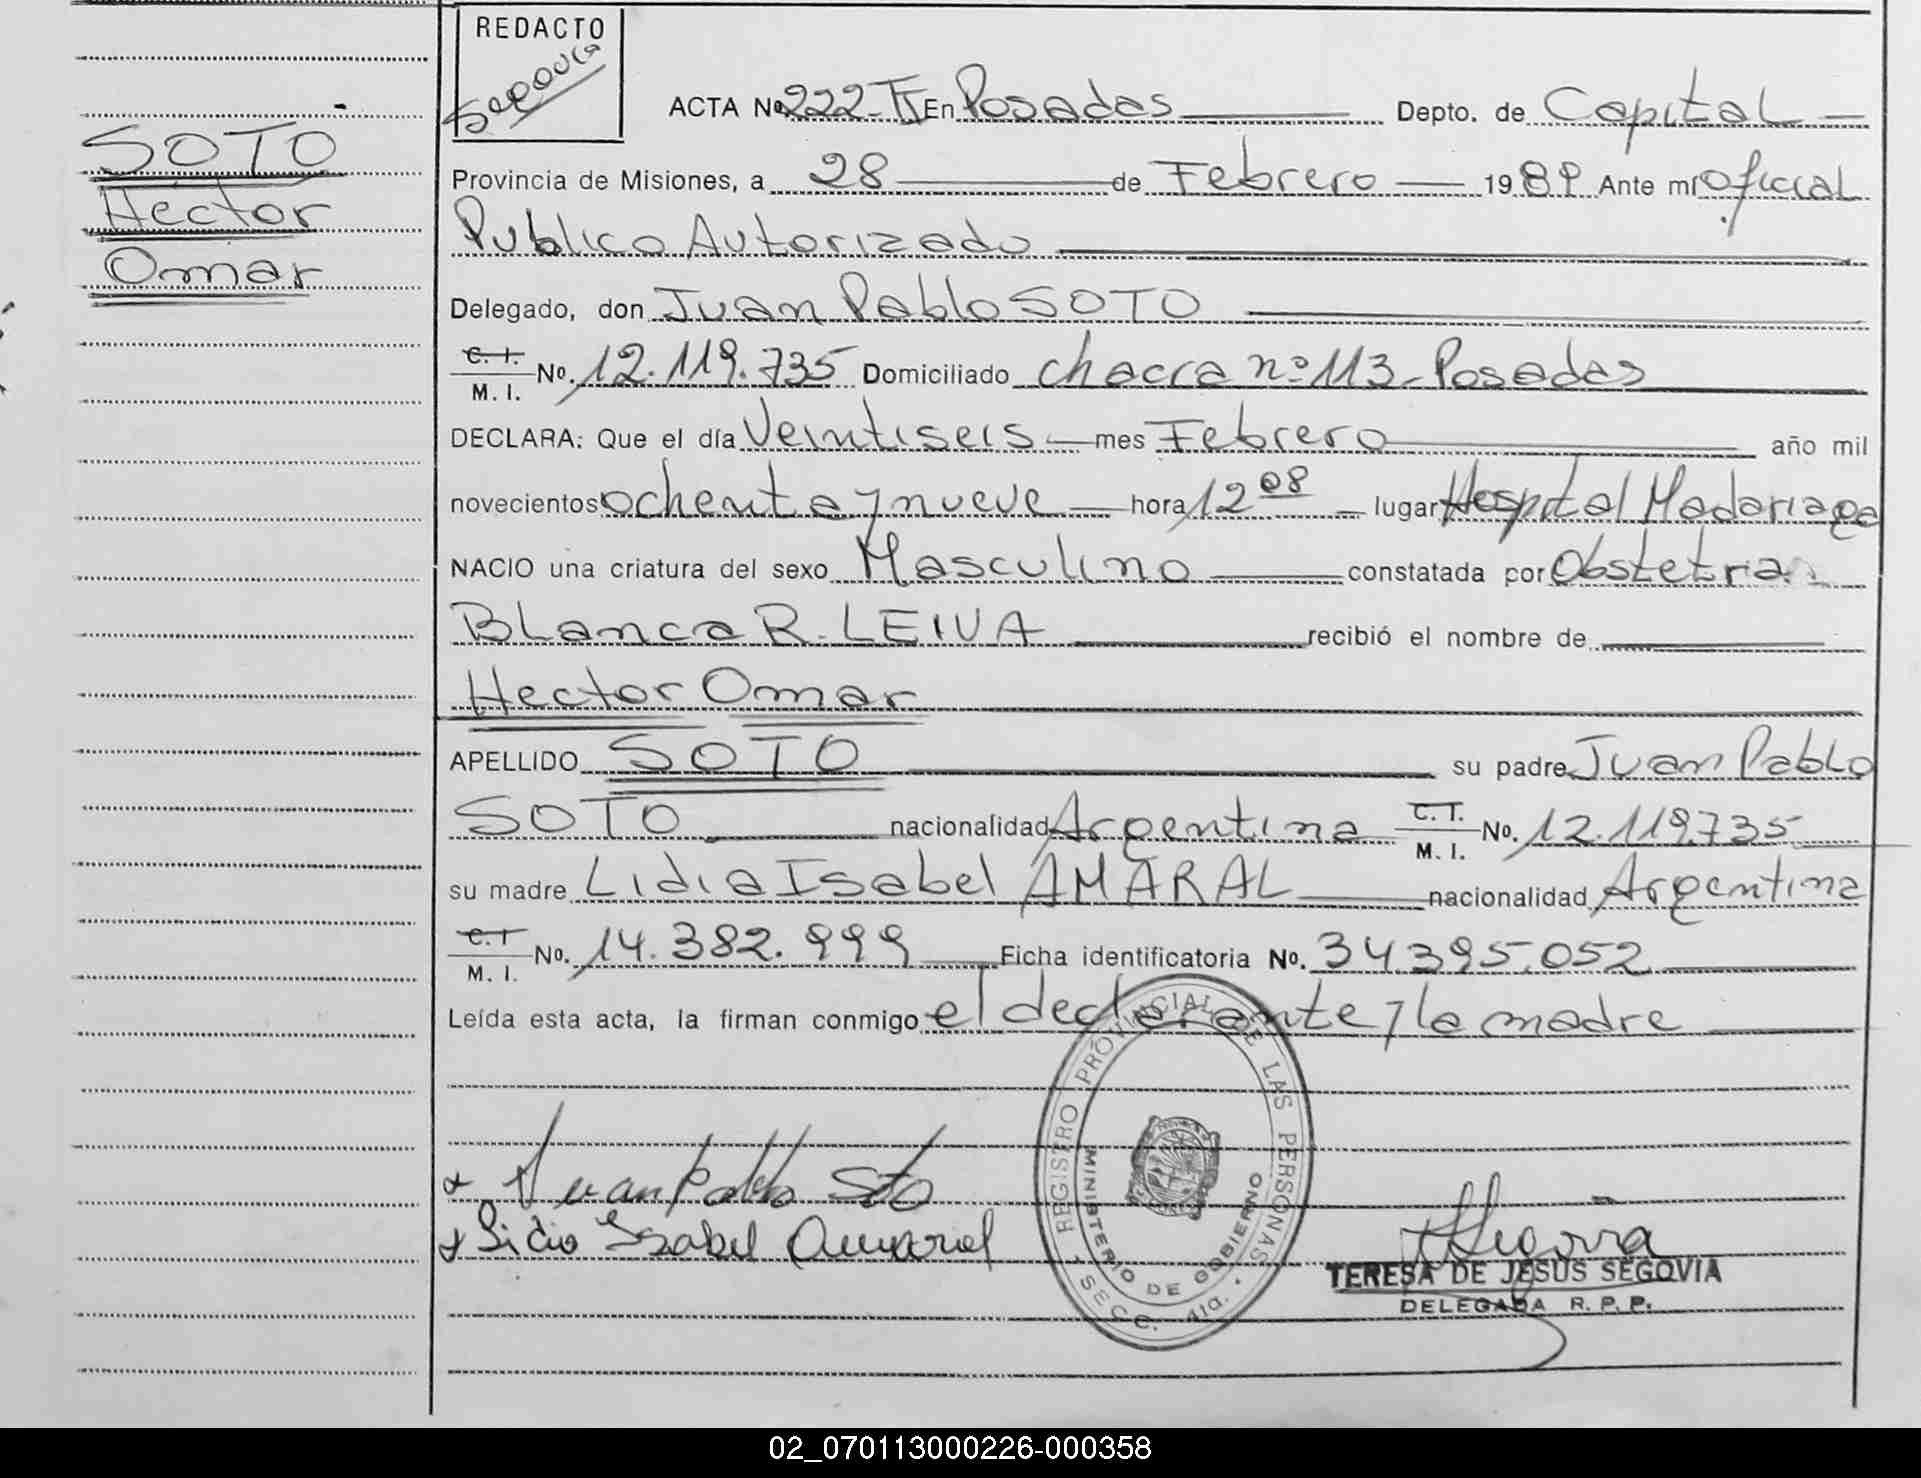 REDACTO
Segovia
SOTO
Hector
Omar
ACTA Nº 222-TI En Posadas Depto. de Capital
Provincia de Misiones, a 28 de Febrero 1989 Ante mí oficial
Publico Autorizado
Delegado, don Juan Pablo SOTO
C. I.
M. I. Nº. 12.119.735 Domiciliado chacra nº 113 - Posadas
DECLARA: Que el día Veintiseis mes Febrero año mil
novecientos ochenta y nueve hora 12 08 lugar Hospital Madariaga
NACIO una criatura del sexo Masculino constatada por Obstetria
Blanca R. LEIVA recibió el nombre de
Hector Omar
APELLIDO SOTO su padre Juan Pablo
SOTO nacionalidad Argentina C. I. M. I. Nº. 12.119.735
su madre Lidia Isabel AMARAL nacionalidad Argentina
C. I
M. I. Nº. 14.382.999 Ficha identificatoria Nº. 34.395.052
Leída esta acta, la firman conmigo el declarante y la madre
Juan Pablo Soto
Lidia Isabel Amaral
REGISTRO PROVINCIAL DE LAS PERSONAS
MINISTERIO DE GOBIERNO
SECC. 41a.
Segovia
TERESA DE JESUS SEGOVIA
DELEGADA R. P. P.
02_070113000226-000358